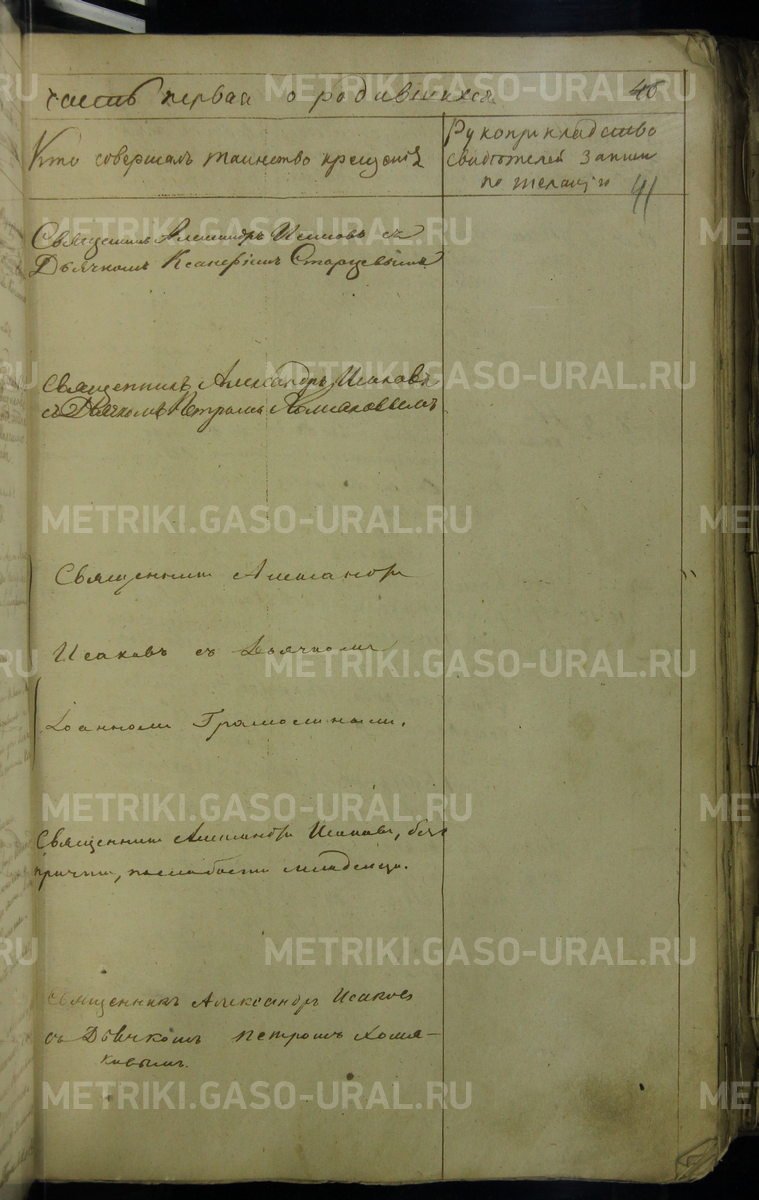 часть первая о родившихся 46
Кто совершалъ таинство крещенія
Рукоприкладство
свидѣтелей записи
по желанію
41
Священникъ Александръ Исаковъ съ
Дьячкомъ Ксанфiемъ Старцевымъ
Священникъ Александръ Исаковъ
съ Дьячкомъ Петромъ Хомяковымъ
Священникъ Александръ
Исаковъ съ Дьячкомъ
Іоанномъ
Священникъ Александръ Исаковъ, безъ
причта, послабости младенца.
Священникъ Александръ Исаковъ
съ Дьячкомъ Петромъ Хомя-
ковымъ.
METRIKI.GASO-URAL.RU